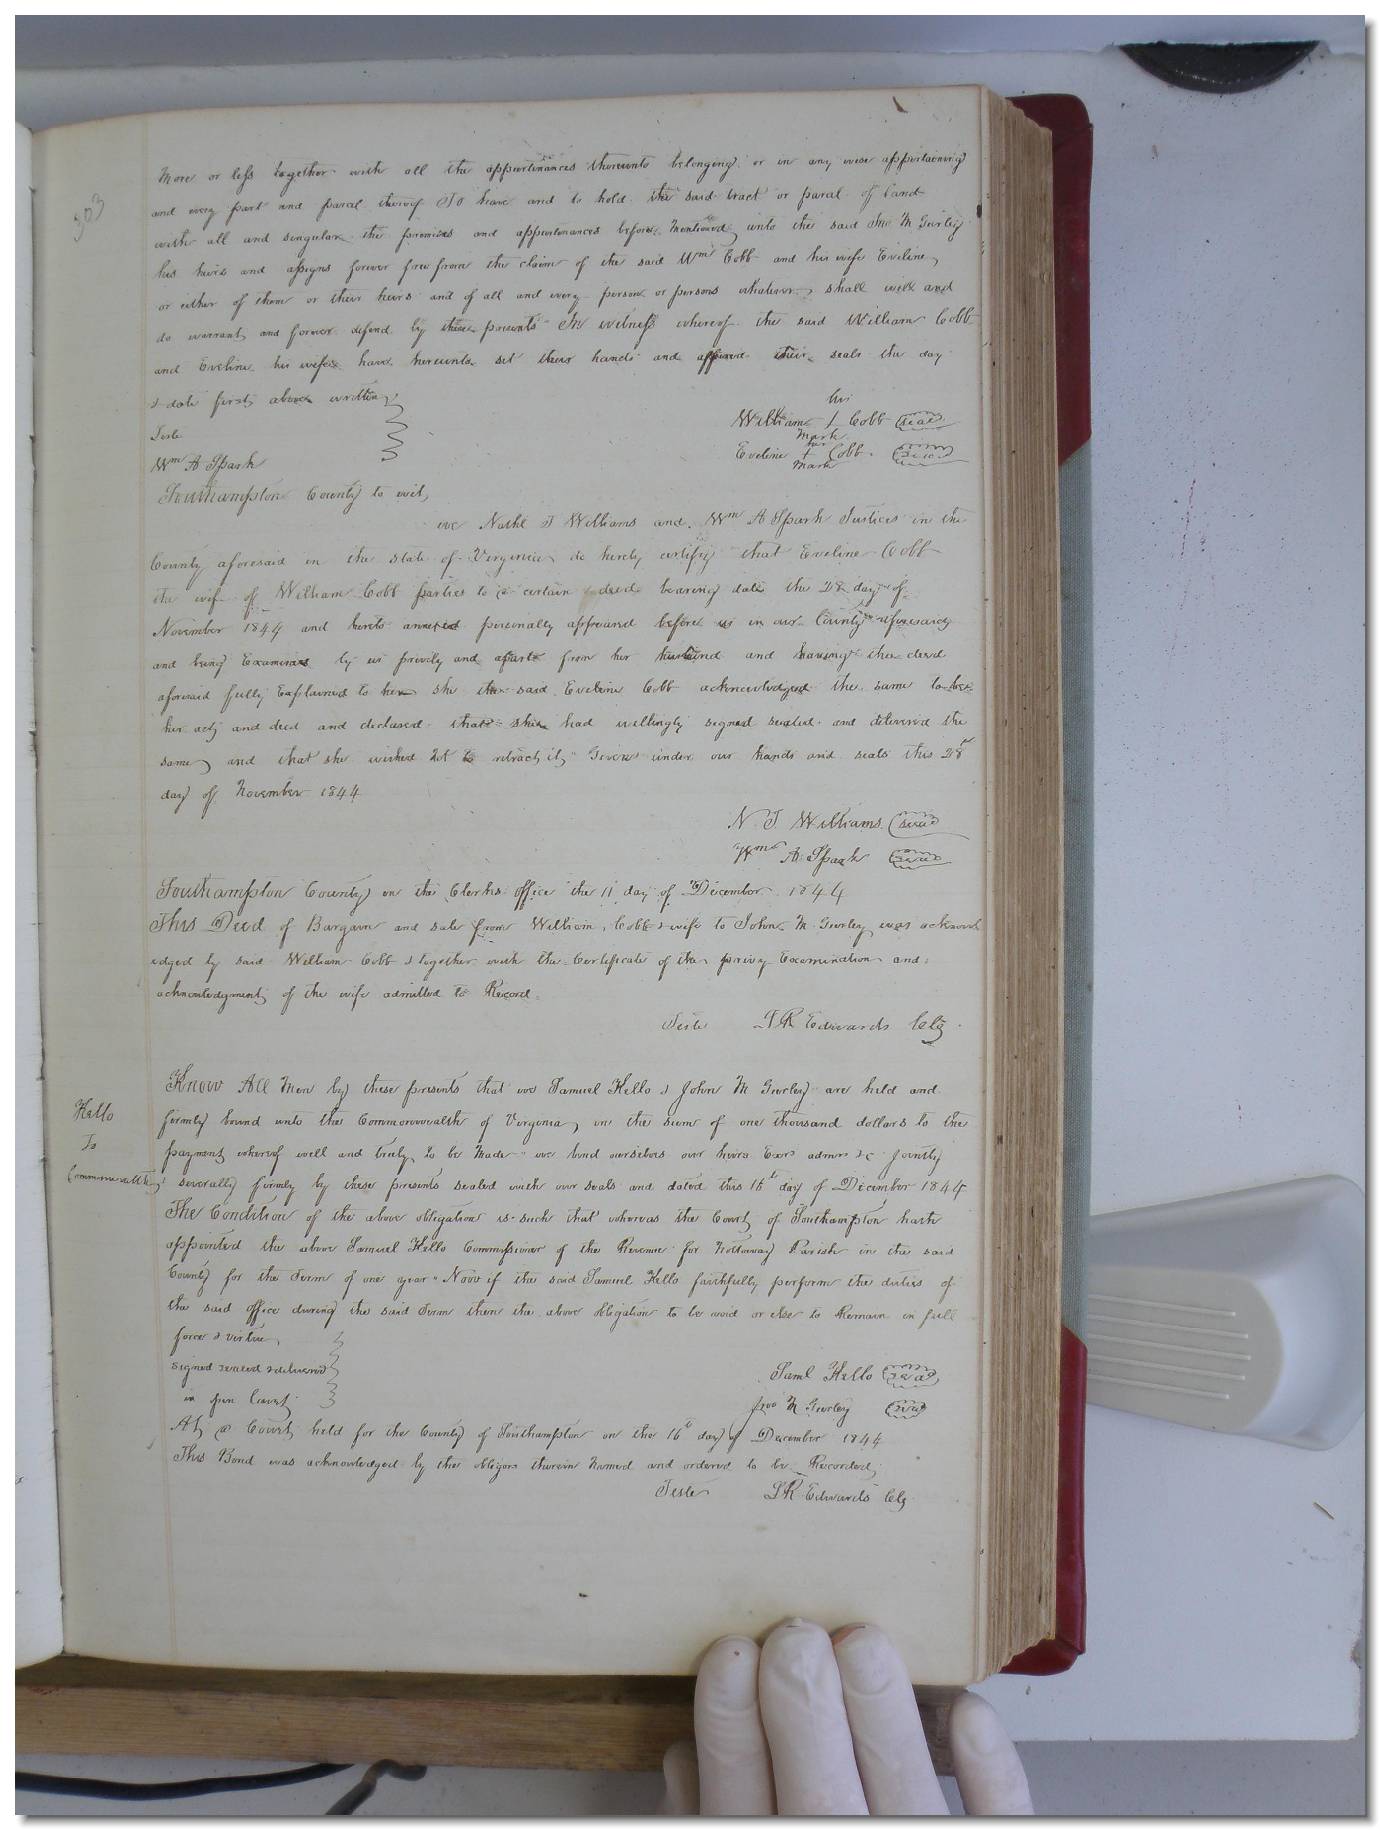 303
More or less together with all the appurtenances thereunto belonging or in any wise appertaining
and every part and parcel thereof To have and to hold the said tract or parcel of land
with all and singular the premises and appurtenances before mentioned unto the said Jno M Gurley
his heirs and assigns forever free from the claim of the said Wm Cobb and his wife Eveline
or either of them or their heirs and of all and every person or persons whatever shall will and
do warrant and forever defend by these presents In witness whereof the said William Cobb
and Eveline his wife have hereunto set their hands and affixed their seals the day
& date first above written
his
William + Cobb seal
mark
Teste
her
Eveline + Cobb seal
mark
Wm A Spark
Southampton County to wit,
we Nathl T Williams and Wm A Spark Justices in the
County aforesaid in the state of Virginia do hereby certify that Eveline Cobb
the wife of William Cobb parties to a certain deed bearing date the 28 day of
November 1844 and hereto annexed personally appeared before us in our County aforesaid
and being Examined by us privily and apart from her husband and having the deed
aforesaid fully Explained to her she the said Eveline Cobb acknowledged the same to be
her act and deed and declared that she had willingly signed sealed and delivered the
same and that she wished not to retract it Given under our hands and seals this 28
day of November 1844
N T Williams seal
Wm A Spark seal
Southampton County on the Clerks office the 11 day of December 1844
This Deed of Bargain and sale from William Cobb & wife to John M Gurley was acknowl
edged by said William Cobb & together with the Certificate of the privy Examination and
acknowledgment of the wife admitted to Record
Teste LR Edwards Clk
Know All Men by these presents that we Samuel Kello & John M Gurley are held and
Kello
To
Commonwealth
firmly bound unto the Commonwealth of Virginia in the sum of one thousand dollars to the
payment whereof well and truly to be Made we bind ourselves our heirs Exors admrs &c Jointly
& severally firmly by these presents sealed with our seals and dated this 16th day of December 1844
The Condition of the above obligation is such that whereas the Court of Southampton hath
appointed the above Samuel Kello Commissioner of the Revenue for Nottoway Parish in the said
County for the Term of one year Now if the said Samuel Kello faithfully perform the duties of
the said office during the said Term then the above obligation to be void or else to Remain in full
force & virtue
signed sealed & delivered
in open Court
Saml Kello seal
Jno M Gurley seal
At a Court held for the County of Southampton on the 16th day of December 1844
This Bond was acknowledged by the obligors therein Named and ordered to be Recorded
Teste LR Edwards Clk